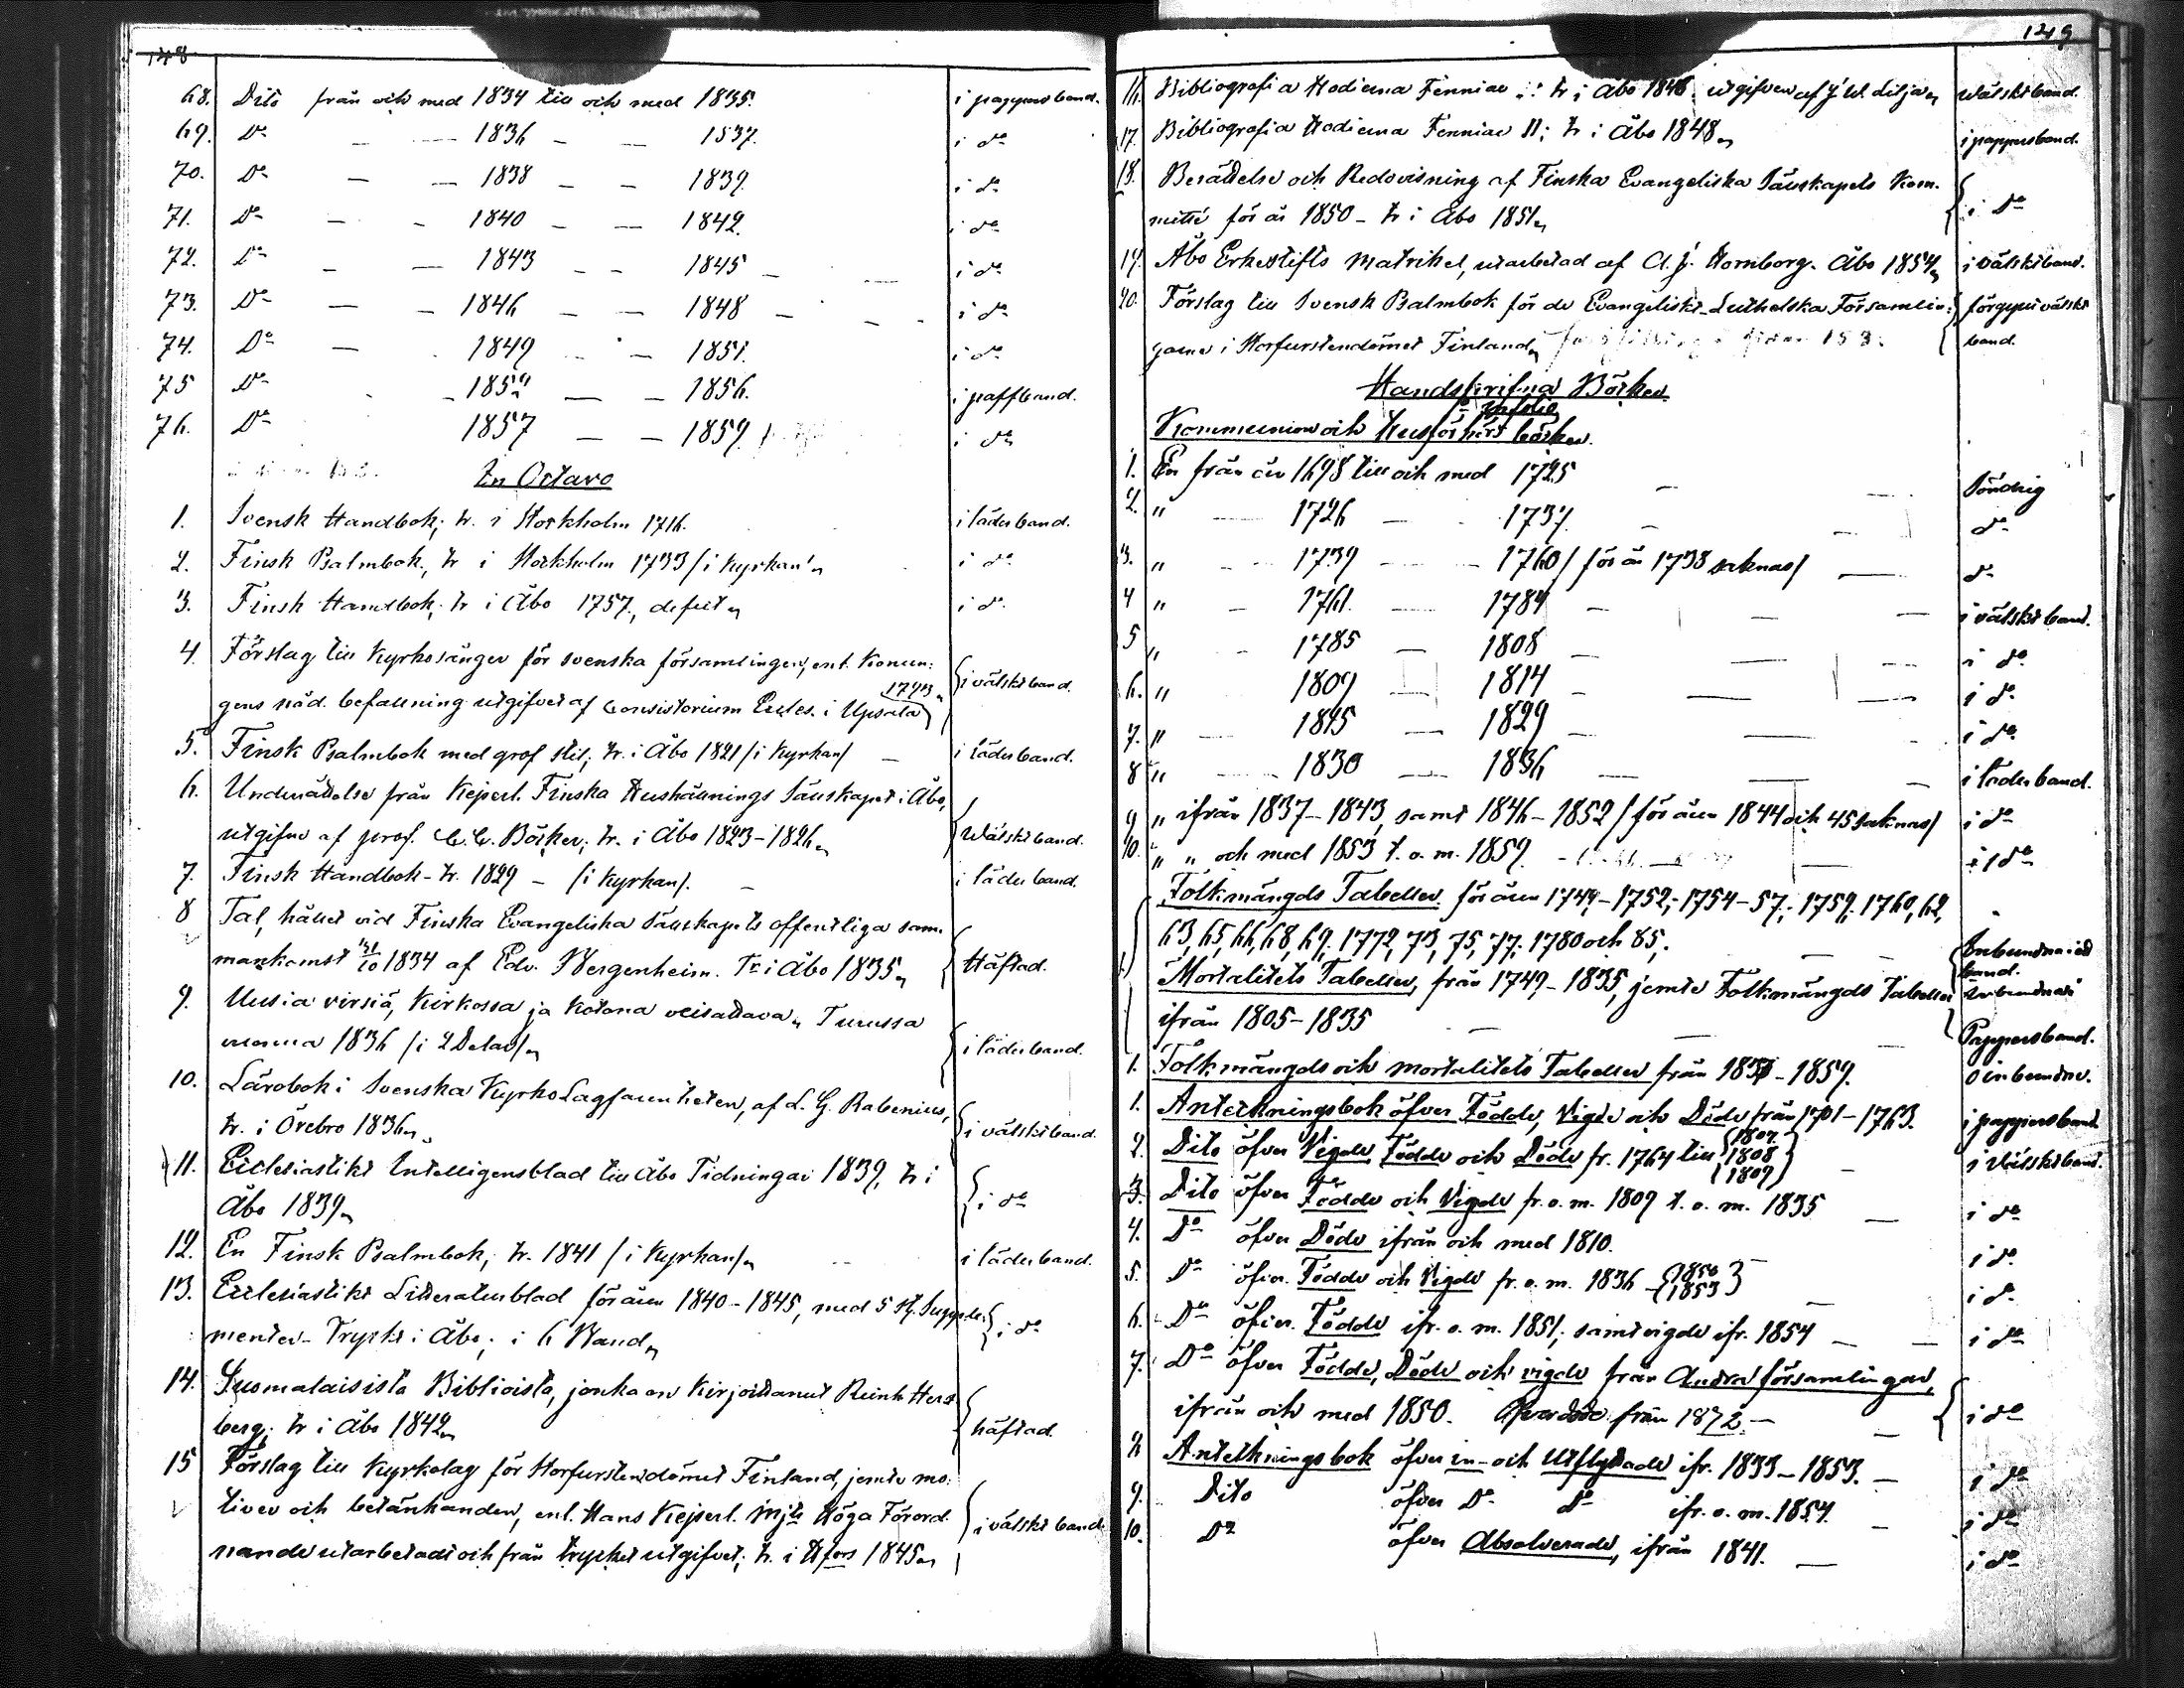 148
68. Dito från och med 1834 till och med 1835. i pappersband.
69. Do — — 1836 — — 1837. i do
70. Do — — 1838 — — 1839. i do
71. Do — - 1840 — — 1842. i do
72. Do - — 1843 - - 1845 — i do
73. Do — - 1846 — — 1848 - i do
74. Do — 1849 — 1851. i do
75 Do - 1852 — — 1856. i paffband.
76. Do 1857 — — 1859. i do
In Octavo
1. Svensk Handbok; tr. i Stockholm 1716. i läderband.
2. Finsk Psalmbok, tr i Stockholm 1733 /i Kyrkan/ i do
3. Finsk Handbok; tr i Åbo 1757, defect i do
4. Förslag till Kyrkosånger för svenska församlingen, enl. Konun-
gens nåd. befallning utgifvet af Consistorium Eccles. i Upsala 1793 i wälskt band.
5. Finsk Psalmbok med grof stil; tr. i Åbo 1821 /i Kyrkan/ — i läderband.
6. Underrättelse från Kejserl. Finska Hushållnings Sällskapet i Åbo,
utgifne af prof. C. C. Böcker; tr. i Åbo 1823-1826 Wälskt band.
7. Finsk Handbok - tr. 1829 - /i Kyrkan/. — i läderband.
8 Tal, hållet vid Finska Evangeliska Sällskapets offentliga sam-
mankomst 1834 af Edv. Bergenheim. Tr i Åbo 1835 Häftad.
9. Uusia virsiä, Kirkossa ja Kotona veisattava, Turussa
vuonna 1836 /i 2 Delar/ i läderband.
10. Lärobok i Svenska Kyrko Lagfarenheten, af L. G. Rabenius,
tr. i Örebro 1836 i wälskt band.
11. Ecclesiastikt Intelligensblad till Åbo Tidningar 1839, tr i
Åbo 1839 i do
12. En Finsk Psalmbok; tr. 1841 /i Kyrkan/ i läderband.
13. Ecclesiastikt Litteraturblad för åren 1840-1845, med 5 st. Supple-
menter - Tryckt i Åbo; i 6 Band i do
14. Suomalaisista Biblioista, jonka on Kirjoittanut Reinh Herz-
berg; tr i Åbo 1842 häftad.
15 Förslag till Kyrkolag för Storfurstendömet Finland, jemte mo-
tiver och betänkanden, enl. Hans Kejserl. Mjts Höga Förord-
nande utarbetadt och från trycket utgifvet; tr. i Hfors 1845 i wälskt band
149
16. Bibliografia Hodierna Fenniae I: tr i Åbo 1846 utgifven af J W. Lilja Wälskt band.
17. Bibliografia Hodierna Fenniae II; tr i Åbo 1848 i pappersband.
18. Berättelse och Redovisning af Finska Evangeliska Sällskapets Kom-
mitté för år 1850 - tr i Åbo 1851 i do
19. Åbo Erkestifts Matrikel, utarbetad af C. J. Hornborg. Åbo 1854 i wälskt band.
20. Förslag till Svensk Psalmbok för de Evangeliskt-Lutherska Församlin-
garne i Storfurstendömet Finland förgyllt wälskt band.
Handskrifna Böcker
in folio
Kommunion och Husförhörs böcker.
1. En från år 1698 till och med 1725 — Söndrig
2. " — 1726 — 1737. — do
3. " — 1739 — 1760 /för år 1738 saknas/ — do
4 " — 1761. — 1784 — i wälskt band.
5 " 1785 — 1808 — i do
6. " 1809 — 1814 — i do
7. " — 1815 — 1829 — i do
8 " — 1830 — 1836 — i läderband.
9 " ifrån 1837-1843, samt 1846-1852 /för åren 1844 och 45 saknas/ i do
10. " " och med 1853 t. o. m. 1859. i do
Folkmängds Tabeller för åren 1749-1752; 1754-57; 1759. 1760, 62,
63, 65, 66, 68, 69. 1772, 73, 75, 77. 1780 och 85. Inbundna i ett band.
Mortalitets Tabeller, från 1749-1835, jemte Folkmängds Tabeller Inbundna i
ifrån 1805-1835 Pappersband.
1. Folkmängds och mortalitets Tabeller från 1836-1859. oinbundne.
1. Anteckningsbok öfver Födde, Vigde och Döde från 1701-1763. i pappersband
2. Dito öfver Vigde, Födde och Döde fr. 1764 till 1807 1808 1809 — i Wälskt band.
3. Dito öfver Födde och Vigde fr. o. m. 1809 t. o. m. 1835 — i do
4. Do öfver Döde ifrån och med 1810. i do
5. Do öfver Födde och Vigde fr. o. m. 1836 - 1850 1853 — i do
6. Do öfver Födde ifr. o. m. 1851; samt vigde ifr. 1854 — i do
7. Do öfver Födde, Döde och vigde från Andra församlingar,
ifrån och med 1850. från 1872. — i do
8 Anteckningsbok öfver in- och Utflyttade ifr. 1833-1853. — i do
9. Dito öfver Do do ifr. o. m. 1854. — i do
10. Do öfver Absolverade, ifrån 1841. — i do